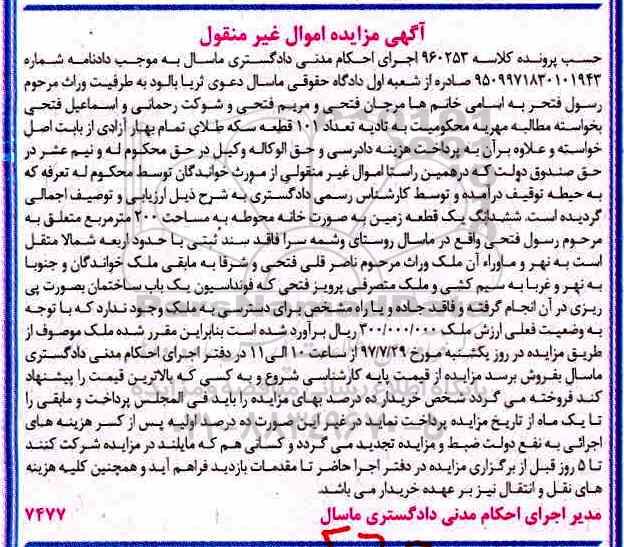 آگهی مزایده اموال غیر منقول
حسب پرونده کلاسه ۹۶۰۲۵۳ اجرای احکام مدنی دادگستری ماسال به موجب دادنامه شماره
۹۵۰۹۹۷۱۸۳۰۱۰۱۹۴۳ صادره از شعبه اول دادگاه حقوقی ماسال دعوی ثریا بالود به طرفیت وراث مرحوم
رسول فتحر به اسامی خانم ها مرجان فتحی و مریم فتحی و شوکت رحمانی و اسماعیل فتحی
بخواسته مطالبه مهریه محکومیت به تادیه تعداد ۱۰۱ قطعه سکه طلای تمام بهار آزادی از بابت اصل
خواسته و علاوه بر آن به پرداخت هزینه دادرسی و حق الوکاله وکیل در حق محکوم له و نیم عشر در
حق صندوق دولت که درهمین راستا اموال غیر منقولی از مورث خواندگان توسط محکوم له تعرفه که
به حیطه توقیف درآمده و توسط کارشناس رسمی دادگستری به شرح ذیل ارزیابی و توصیف اجمالی
گردیده است. ششدانگ یک قطعه زمین به صورت خانه محوطه به مساحت ۲۰۰ مترمربع متعلق به
مرحوم رسول فتحی واقع در ماسال روستای وشمه سرا فاقد سند ثبتی با حدود اربعه شمالا متقل
است به نهر و ماوراء آن ملک وراث مرحوم ناصر قلی فتحی و شرقا به مابقی ملک خواندگان و جنوبا
به نهر و غربا به سیم کشی و ملک متصرفی پرویز فتحی که فونداسیون یک باب ساختمان بصورت پی
ریزی در آن انجام گرفته و فاقد جاده و یا راه مشخص برای دسترسی به ملک وجود ندارد که با توجه
به وضعیت فعلی ارزش ملک ۳۰۰/۰۰۰/۰۰۰ ریال برآورد شده است بنابراین مقرر شده ملک موصوف از
طریق مزایده در روز یکشنبه مورخ ۹۷/۷/۲۹ از ساعت ۱۰ الی ۱۱ در دفتر اجرای احکام مدنی دادگستری
ماسال بفروش برسد مزایده از قیمت پایه کارشناسی شروع و به کسی که بالاترین قیمت را پیشنهاد
کند فروخته می گردد شخص خریدار ده درصد بهای مزایده را باید فی المجلس پرداخت و مابقی را
تا یک ماه از تاریخ مزایده پرداخت نماید در غیر این صورت ده درصد اولیه پس از کسر هزینه های
اجرائی به نفع دولت ضبط و مزایده تجدید می گردد و کسانی هم که مایلند در مزایده شرکت کنند
تا ۵ روز قبل از برگزاری مزایده در دفتر اجرا حاضر تا مقدمات بازدید فراهم آید و همچنین کلیه هزینه
های نقل و انتقال نیز بر عهده خریدار می باشد.
مدیر اجرای احکام مدنی دادگستری ماسال ۷۴۷۷